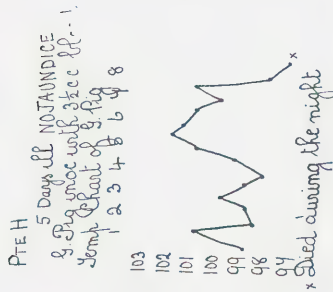 PTE H
5 Days ill NO JAUNDICE
G. Pig inoc with 3½cc bl...!
Temp Chart of G. Pig
1 2 3 4 5 6 7 8
103
102
101
100
99
98
94
x Died during the night